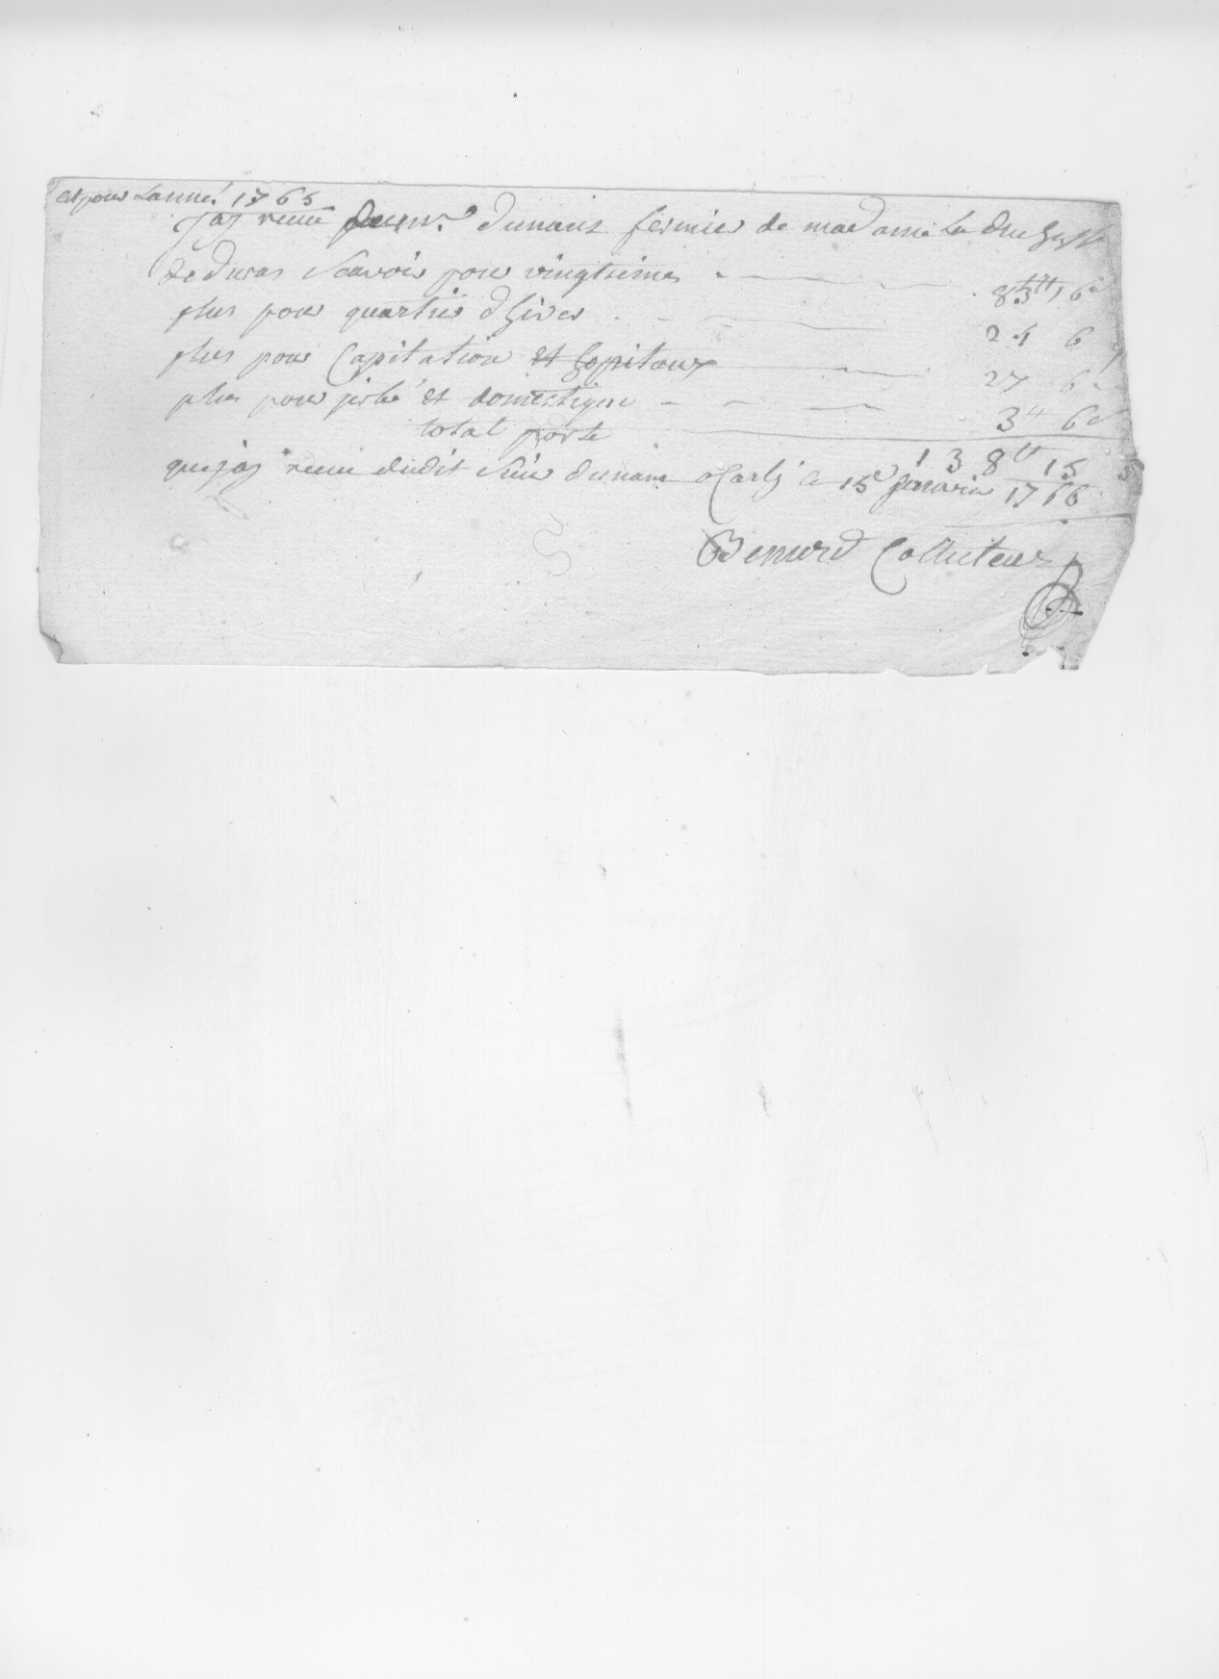 et pour Lanné 1765
Jay receu du mr. dunaus fermier de madame la duchesse
de duras Scavoir pour vingtiemes 83tt 6d
plus pour quartier dhiver 24 6
plus pour Capitation et Capitaux 27 6
plus pour et domestique 3tt 6d
total porte 138tt 15
que jay receu dudit Sieur dunaus a le 15e janvier 1766
Benard Collecteur